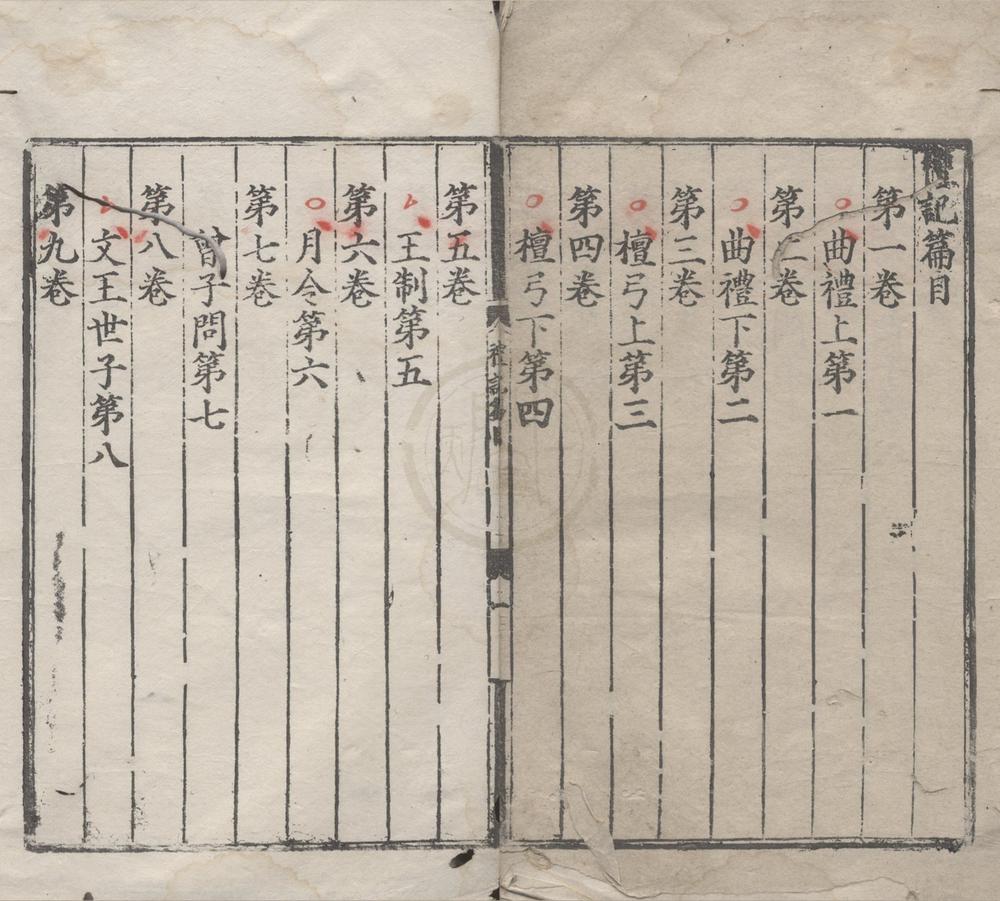 禮記篇目
第一卷
曲禮上第一
第二卷
曲禮下第二
第三卷
檀弓上第三
第四卷
檀弓下第四
禮記篇目
一
第五卷
王制第五
第六卷
月令第六
第七卷
曾子問第七
第八卷
文王世子第八
第九卷